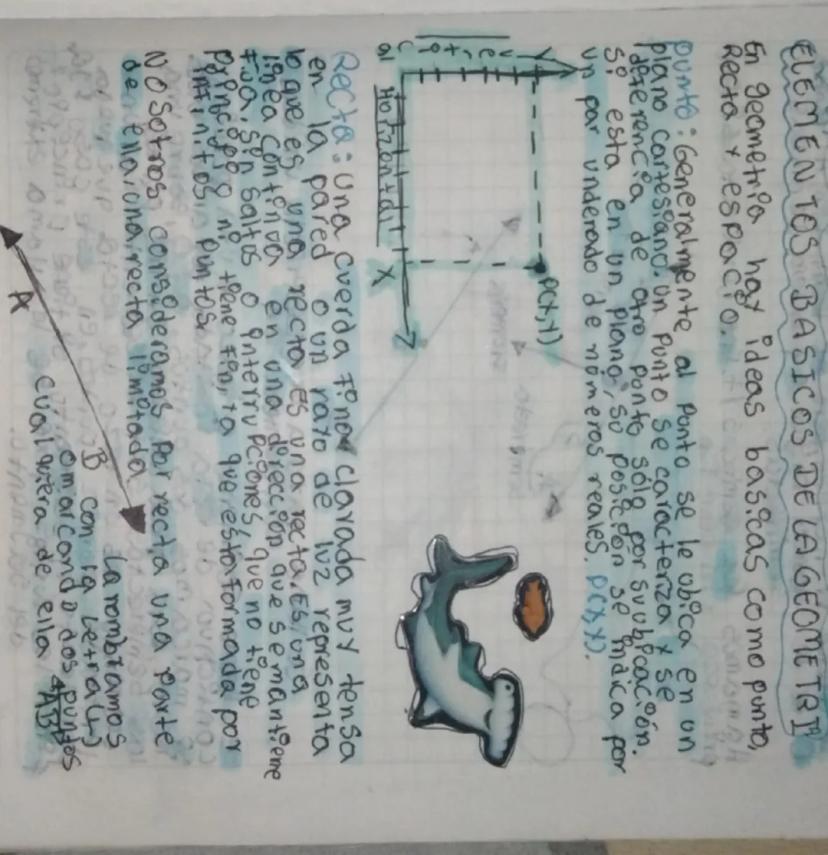 ELEMENTOS BASICOS DE LA GEOMETRIA
En geometria hay ideas basicas como punto,
Recta y espacio.
Punto: Generalmente al punto se le ubica en un
plano cartesiano. Un punto se caracteriza y se
diferencia de otro punto sólo por su ubicación.
Si esta en un plano, su posición se indica por
un par underado de números reales. P(X,Y).
Y
P(X,Y)
Vertical
Horizontal
X
Recta: Una cuerda fina clavada muy tensa
en la pared o un rayo de luz representa
lo que es una recta. Es una recta. Es una
linea continua en una dirección que se mantiene
fija, sin saltos o interrupciones, que no tiene
principio ni tiene fin, ya que esta formada por
infinitos puntos.
Nosotros consideramos por recta una parte
de ella, una recta limitada.
A
B
La nombramos
con la letra (L)
o marcando dos puntos
cualquiera de ella AB